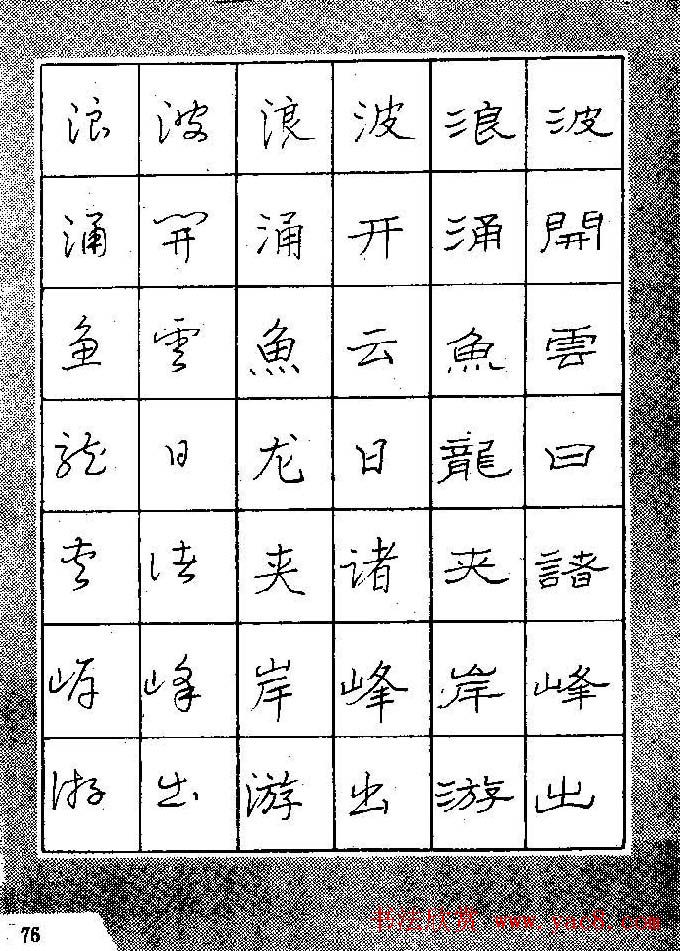 波開雲日諸峰出
浪涌魚龍夹岸游
波开云日诸峰出
浪涌魚龙夹岸游
波開雲日诸峰出
浪涌鱼龙夹岸游
76
书法欣赏 www.yac8.com